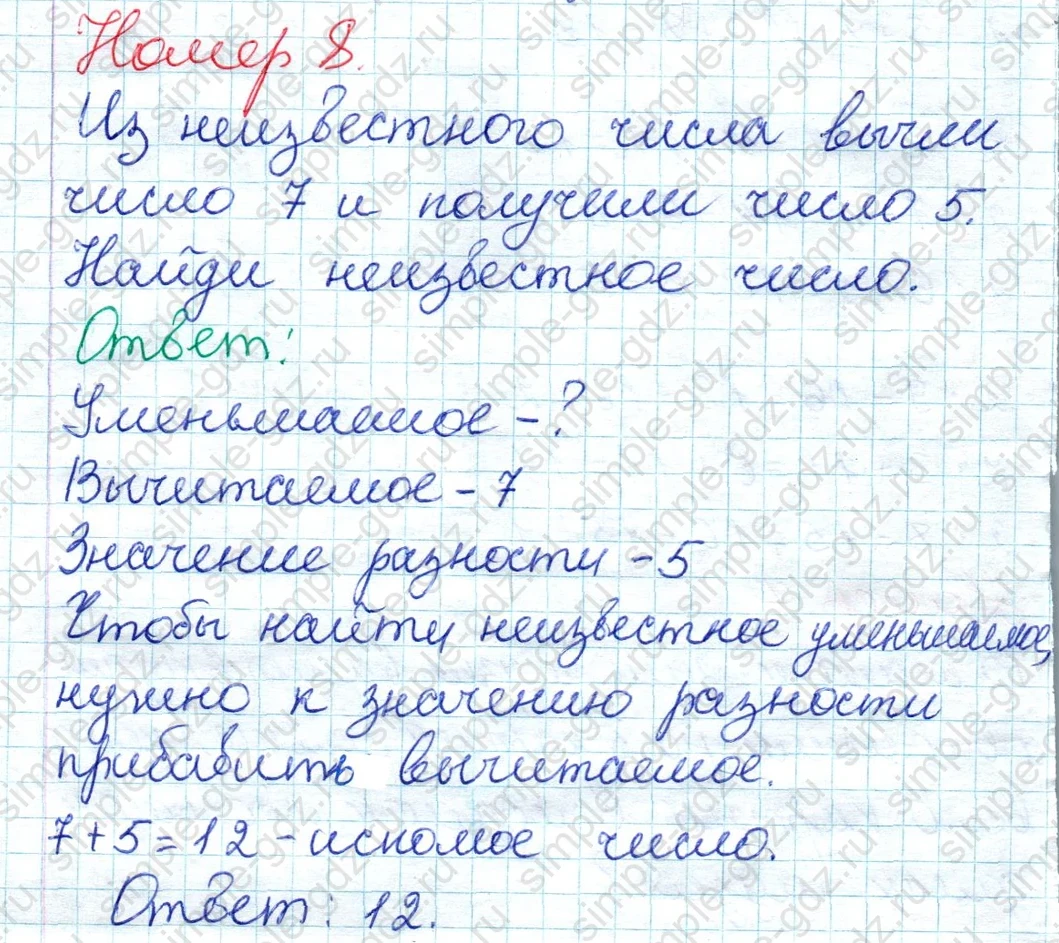 Номер 8.
Из неизвестного числа вычли
число 7 и получили число 5.
Найди неизвестное число.
Ответ:
Уменьшаемое - ?
Вычитаемое - 7
Значение разности - 5
Чтобы найти неизвестное уменьшаемое,
нужно к значению разности
прибавить вычитаемое.
7 + 5 = 12 - искомое число.
Ответ: 12.
simple-gdz.ru